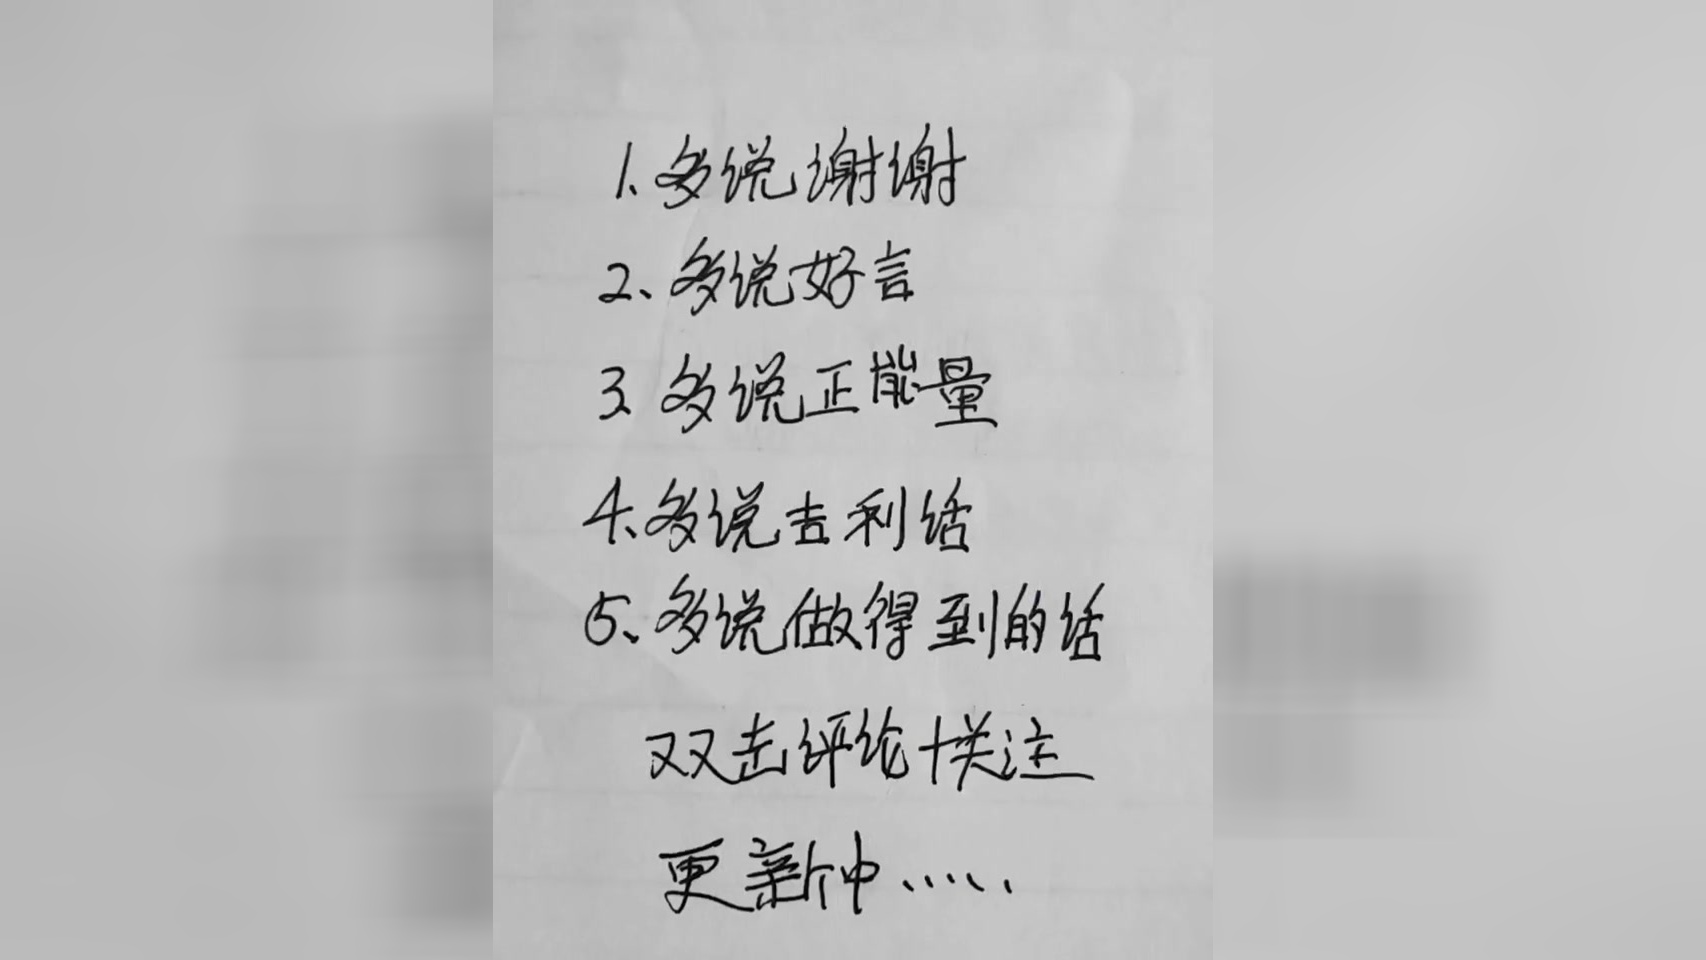 1、多说谢谢
2、多说好言
3、多说正能量
4、多说吉利话
5、多说做得到的话
双击评论+关注
更新中……